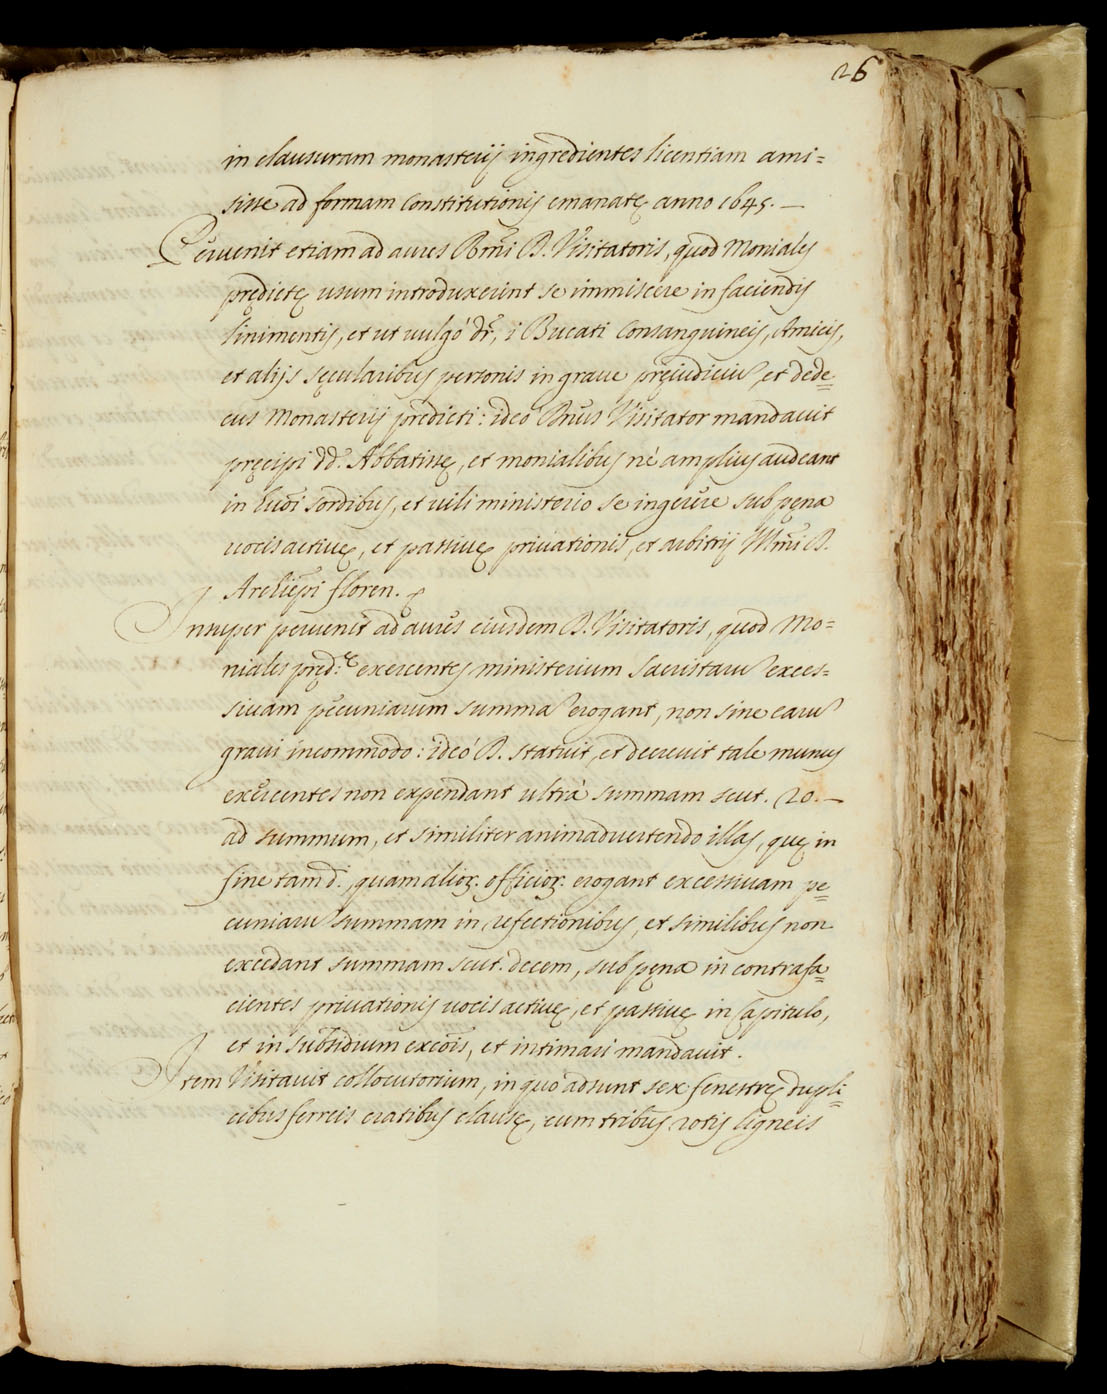 26
in clausuram monasterij ingredientes licentiam ami=
sisse ad formam Constitutionis emanatę anno 1645. —
Pervenit etiam ad aures Rm̃i D. Visitatoris, quod Moniales
prędictę usum introduxerint se immiscere in faciendis
linimentis, et ut vulgò dr̃, i Bucati Consanguineis, Amicis,
et alijs sęcularibus personis in graue pręjudiciũ, et dede=
cus Monasterij prędicti: ideò Dñus Visitator mandauit
pręcipi DD. Abbatissę, et monialibus nè amplius audeant
in hmõi sordibus, et uili ministerio se ingerere sub pęna
uocis actiuę, et passiuę priuationis, et arbitrij Illm̃i D.
Archiep̃i Floren.
Insuper peruenit ad aures eiusdem D. Visitatoris, quod Mo=
niales pręd.ę exercentes ministerium Sacristarũ exces=
siuam pecuniarum summã erogant, non sine earũ
graui incommodo: ideò D. statuit, et decreuit tale munus
exercentes non expendant ultrà summam scut. 20. —
ad summum, et similiter animaduertendo illas, quę in
fine tam d., quam alior. officior. erogant excessiuam pe=
cuniarũ summam in refectionibus, et similibus non
excedant summam scut. decem, sub pęna in contrafa=
cientes priuationis uocis actiuę, et passiuę in Capitulo,
et in subsidium excõis, et intimari mandauit.
Item Visitauit collocutorium, in quo adsunt sex fenestrę dupli=
cibus ferreis cratibus clausę, cum tribus rotis ligneis